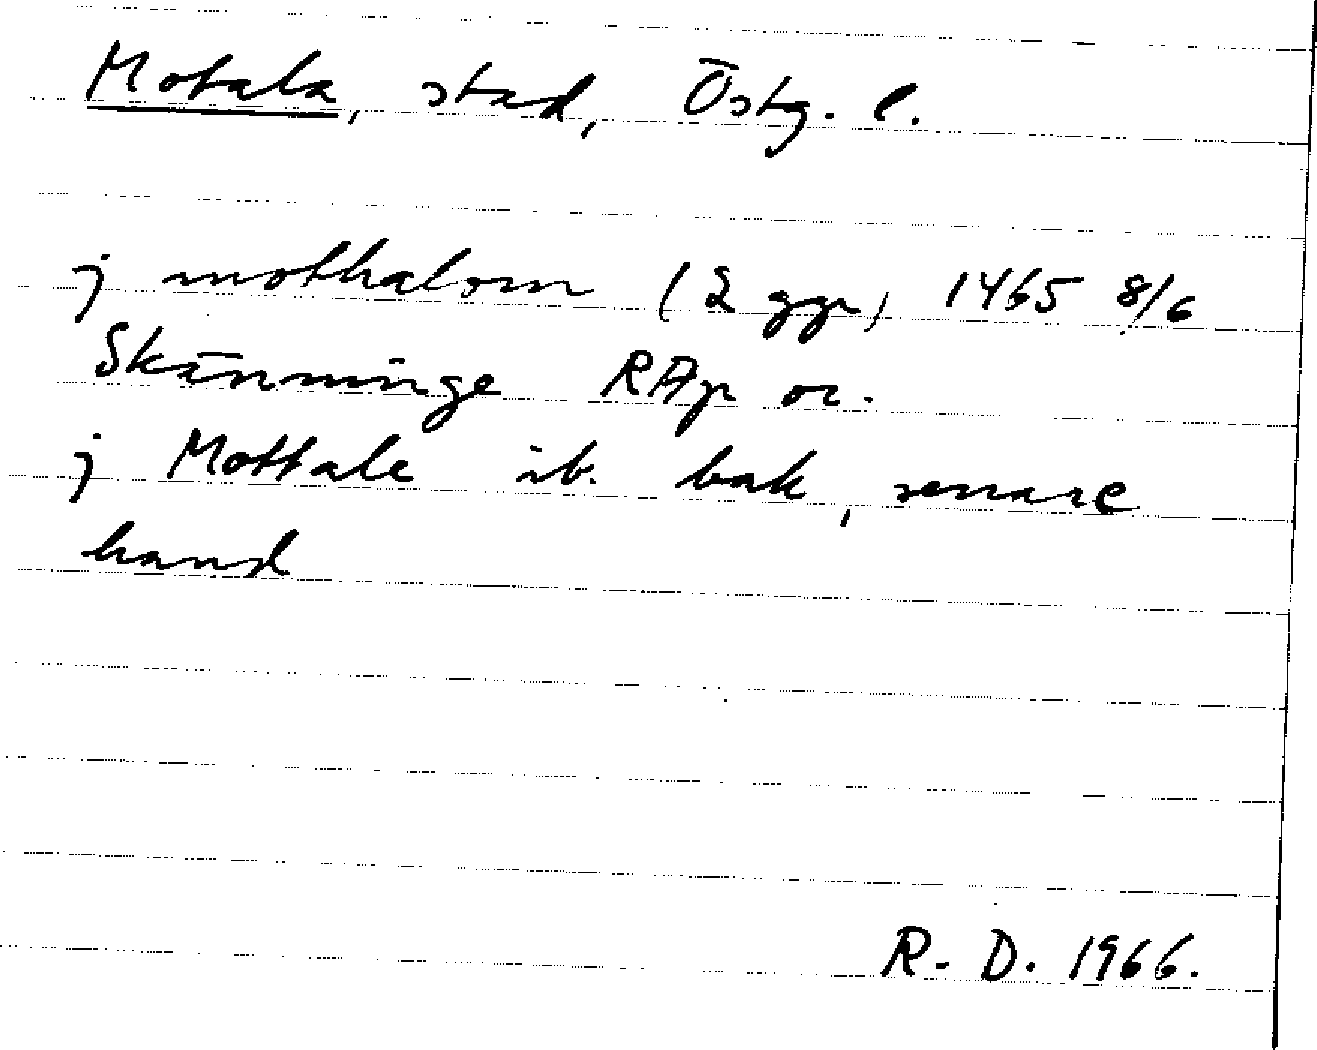 Motala, stad, Östg. l.
j mothalom (2 ggr) 1465 8/6
Skänninge RAp or.
j Mottale ib. bak, senare
hand
R. D. 1966.